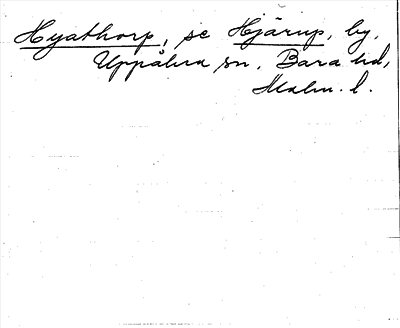 Hyathorp, se Hjärup, by,
Uppåkra sn, Bara hd,
Malm. l.